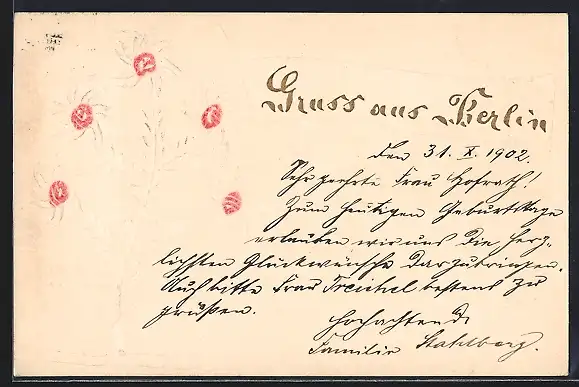 Gruss aus Berlin
Den 31. X. 1902.
Sehr geehrte Frau Hofrath!
Zum heutigen Geburtstage
erlauben wir uns die herz-
lichsten Glückwünsche darzubringen.
Auch bitte Frau Trenkel bestens zu
grüßen.
Hochachtend
Familie Stahlberg.